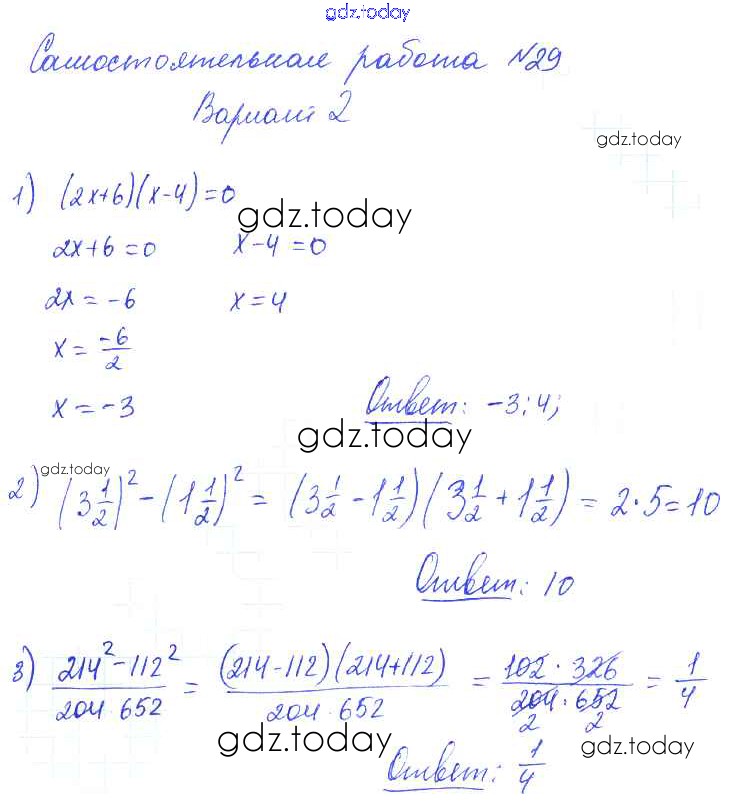 gdz.today
Самостоятельная работа №29
Вариант 2
gdz.today
1) (2x+6)(x-4)=0
gdz.today
2x+6=0 x-4=0
2x=-6 x=4
x=\frac{-6}{2}
x=-3 Ответ: -3; 4;
gdz.today
gdz.today
2) (3\frac{1}{2})^2-(1\frac{1}{2})^2=(3\frac{1}{2}-1\frac{1}{2})(3\frac{1}{2}+1\frac{1}{2})=2·5=10
Ответ: 10
3) \frac{214^2-112^2}{204·652}=\frac{(214-112)(214+112)}{204·652}=\frac{102·326}{204·652}=\frac{1}{4}
2 2
gdz.today
gdz.today
Ответ: \frac{1}{4}